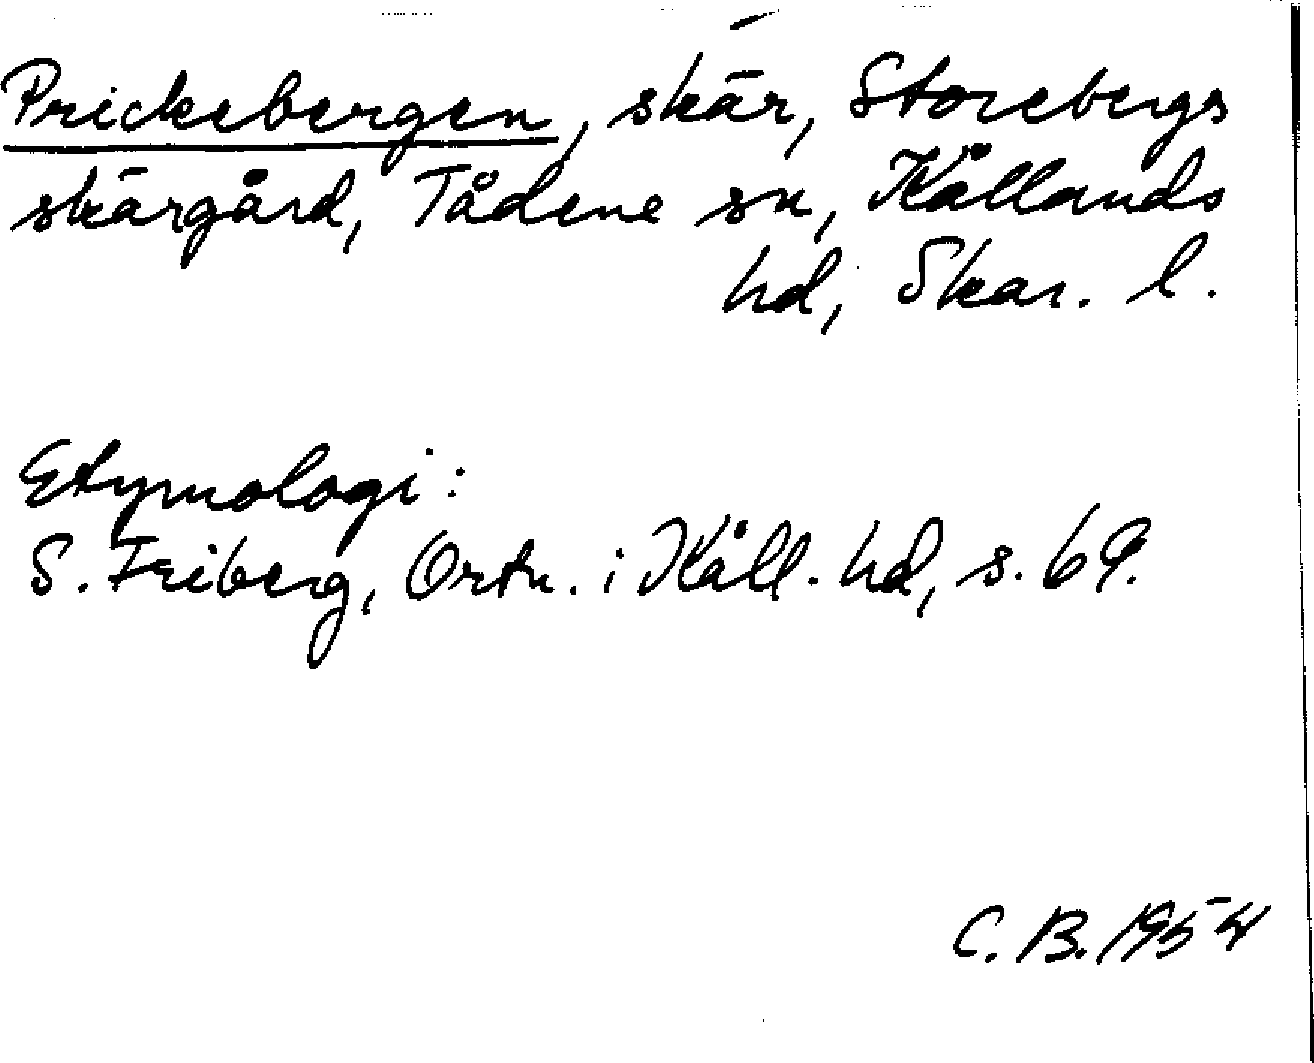 Prickebergen, skär, Storebergs
skärgård, Tådene sn, Kållands
hd, Skar. l.
Etymologi:
S. Friberg, Ortn. i Kåll. hd, s. 69.
C. B. 1954